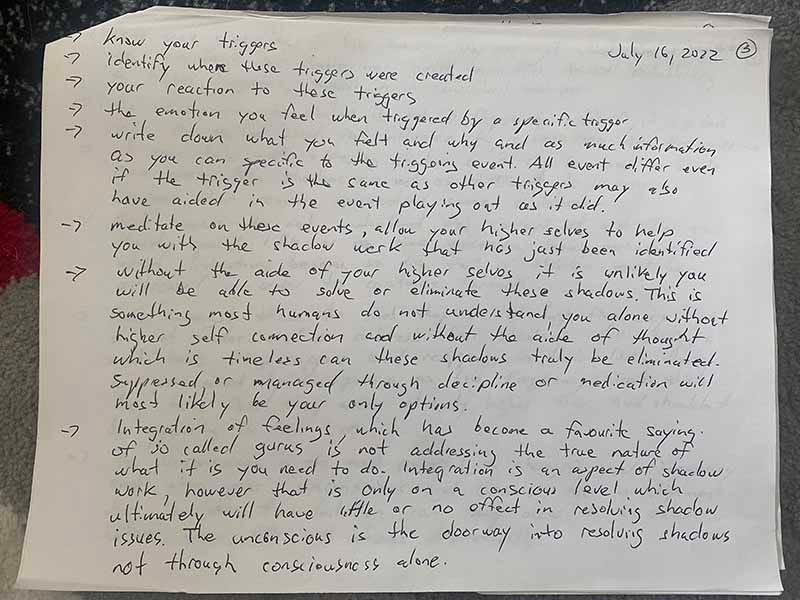 July 16, 2022 ③
→ know your triggers
→ identify where these triggers were created
→ your reaction to these triggers
→ the emotion you feel when triggered by a specific trigger
→ write down what you felt and why and as much information
as you can specific to the triggoing event. All event differ even
if the trigger is the same as other triggers may also
have aided in the event playing out as it did.
→ meditate on these events, allow your higher selves to help
you with the shadow work that has just been identified
→ without the aide of your higher selves it is unlikely you
will be able to solve or eliminate these shadows. This is
something most humans do not understand, you alone without
higher self connection and without the aide of thought
which is timeless can these shadows truly be eliminated.
Suppressed or managed through decipline or medication will
most likely be your only options.
→ Integration of feelings, which has become a favourite saying
of so called gurus is not addressing the true nature of
what it is you need to do. Integration is an aspect of shadow
work, however that is only on a conscious level which
ultimately will have little or no effect in resolving shadow
issues. The unconscious is the doorway into resolving shadows
not through consciousness alone.